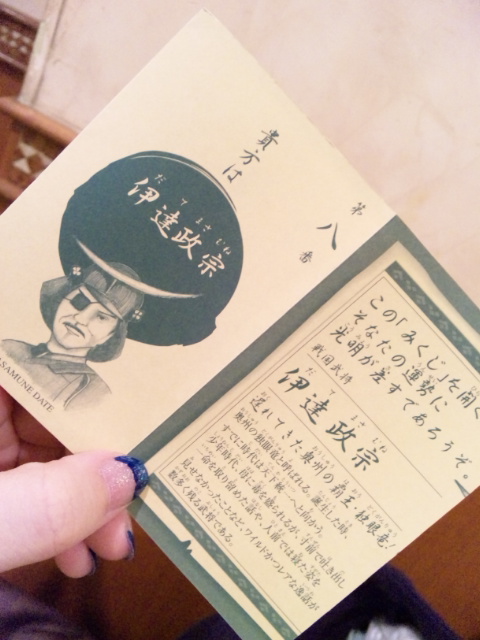 第八番
貴方は
だてまさむね
伊達政宗
SAMUNE DATE
この「みくじ」を開く
そなたの運勢に
光明が差すであろうぞ。
戦国武将
だてまさむね
伊達政宗
遅れてきた奥州の覇王・独眼竜!
奥州の独眼竜と呼ばれる。誕生した頃、
すでに時代は天下統一へと向かう。
少年時代、母に毒を盛られるが、寸前で吐き出し
一命を取り留めた話や、人前では寝た姿を
見せなかったことなど、ワイルドかつレアな逸話が
数多く残る武将である。